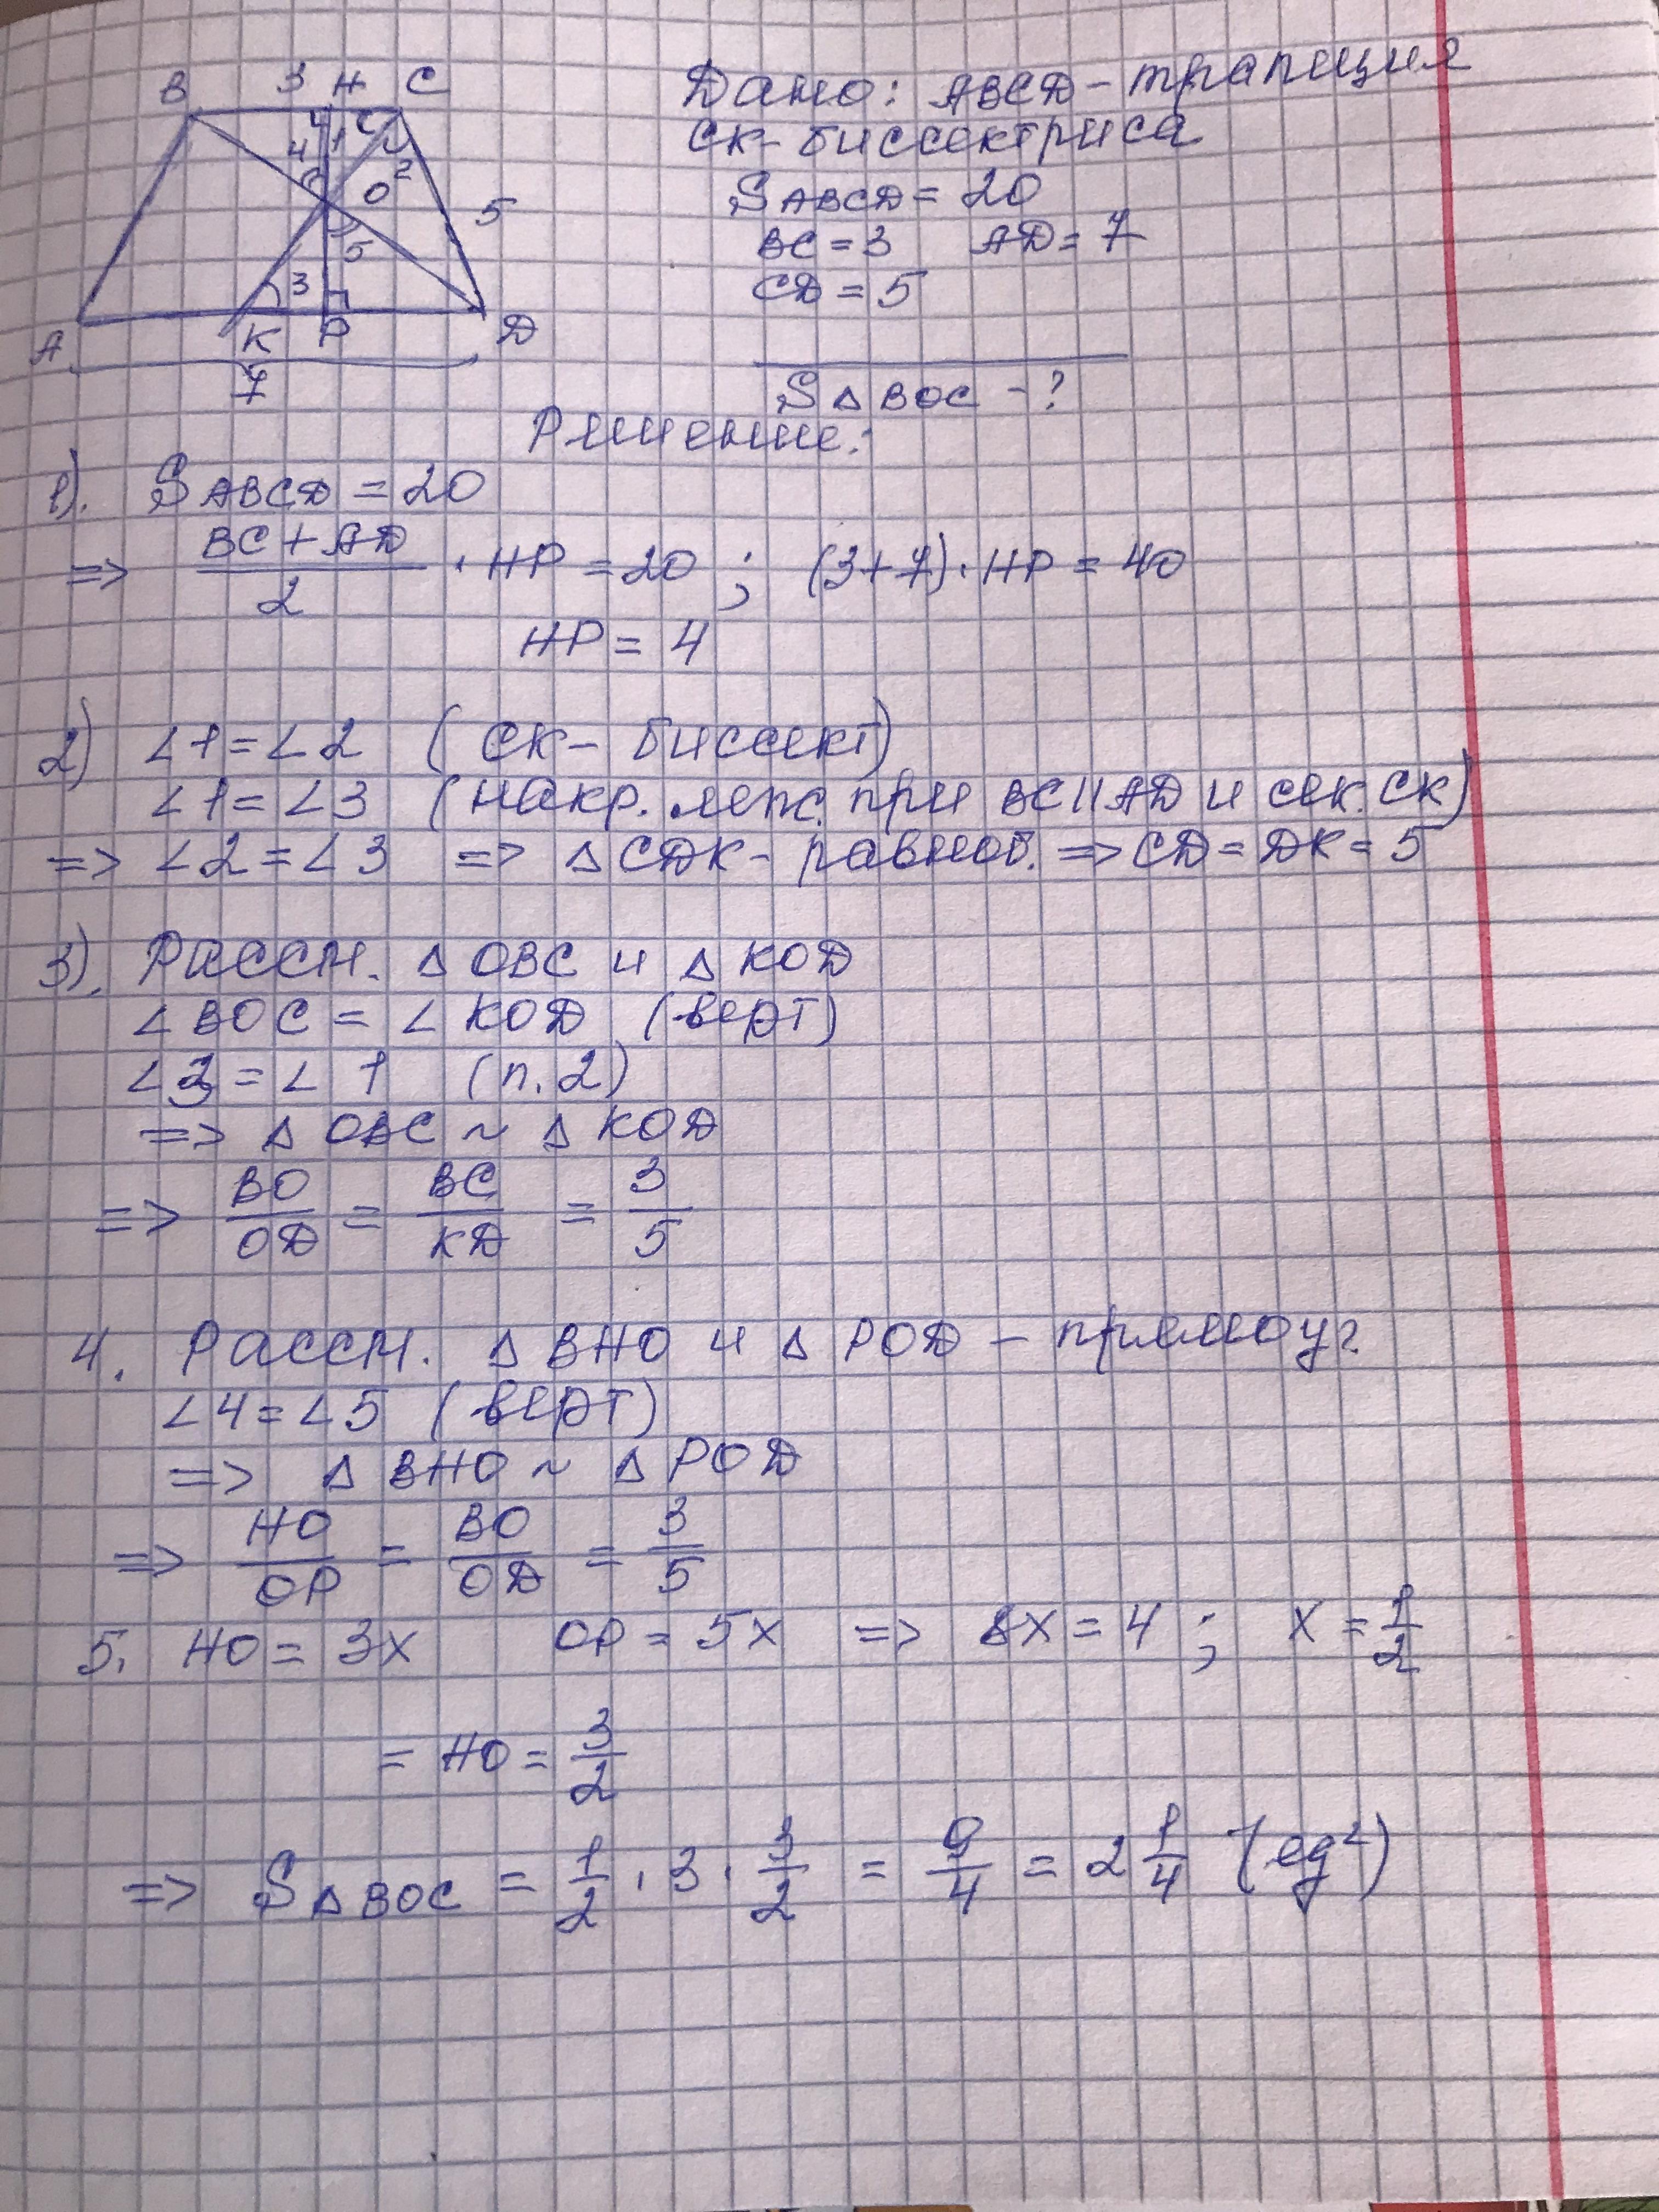 B 3 H C
4 1 2
O 5
5
3
A K P D
7
Дано: ABCD – трапиция
CK – биссектриса
SABCD = 20
BC = 3 AD = 7
CD = 5
S△BOC – ?
Решение:
1). SABCD = 20
=> (BC + AD)/2 · HP = 20 ; (3+7) · HP = 40
HP = 4
2) ∠1 = ∠2 (CK – биссект)
∠1 = ∠3 (накр. леж. при BC || AD и сек. CK)
=> ∠2 = ∠3 => △CDK – равноб. => CD = DK = 5
3). Рассм. △ OBC и △ KOD
∠BOC = ∠KOD (верт)
∠3 = ∠1 (п. 2)
=> △ OBC ~ △ KOD
=> BO/OD = BC/KD = 3/5
4. Рассм. △ BHO и △ POD – прямоуг.
∠4 = ∠5 (верт)
=> △ BHO ~ △ POD
=> HO/OP = BO/OD = 3/5
5. HO = 3x OP = 5x => 8x = 4 ; x = 1/2
= HO = 3/2
=> S△BOC = 1/2 · 3 · 3/2 = 9/4 = 2 1/4 (ед²)